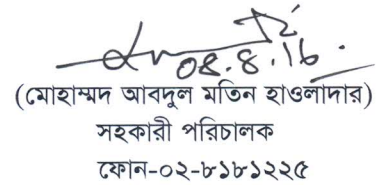 08.8.16.
(মোহাম্মদ আবদুল মতিন হাওলাদার)
সহকারী পরিচালক
ফোন-০২-৮১৮১২২৫